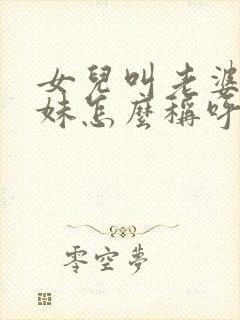 女兒叫老婆
妹怎麼稱呼
零空夢